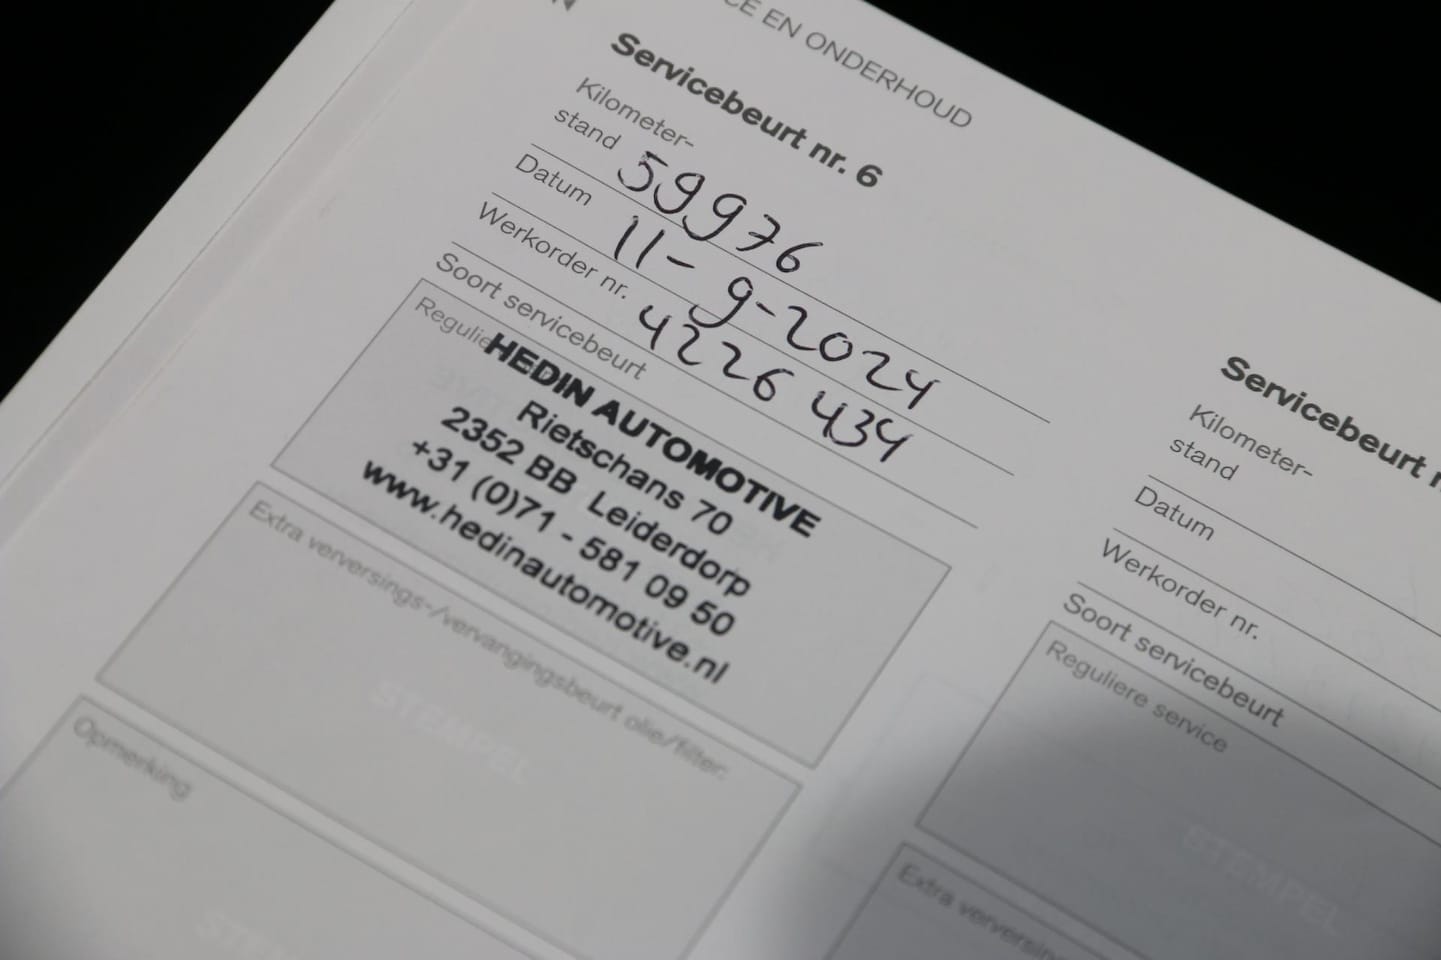 EN ONDERHOUD
Servicebeurt nr. 6
Kilometer-
stand 59976
Datum 11-9-2024
Werkorder nr. 4226434
Soort servicebeurt
HEDIN AUTOMOTIVE
Rietschans 70
2352 BB Leiderdorp
+31 (0)71 - 581 09 50
www.hedinautomotive.nl
Extra verversings-/vervangingsbeurt olie/filter:
STEMPEL
Opmerking
Servicebeurt
Kilometer-
stand
Datum
Werkorder nr.
Soort servicebeurt
Reguliere service
STEMPEL
Extra